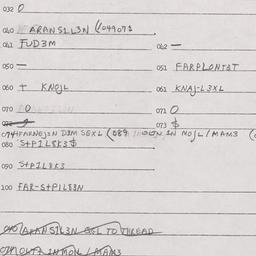 032 0
040 ARANSIL3N (049073
041 FUD3M
042 —
050 —
051 FARPLONTST
060 + KNOJL
061 KNAJ-L3XL
070 0
071 0
073 $
074 HARNEJIN D3M SGXL (089 IN MOJL / MAM3
080 S+PIL8K3$
090 S+PIL8K3
100 FAR-S+PIL83N
040 ARANSIL3N SGL TO THREAD
IN MOJL / MAM3